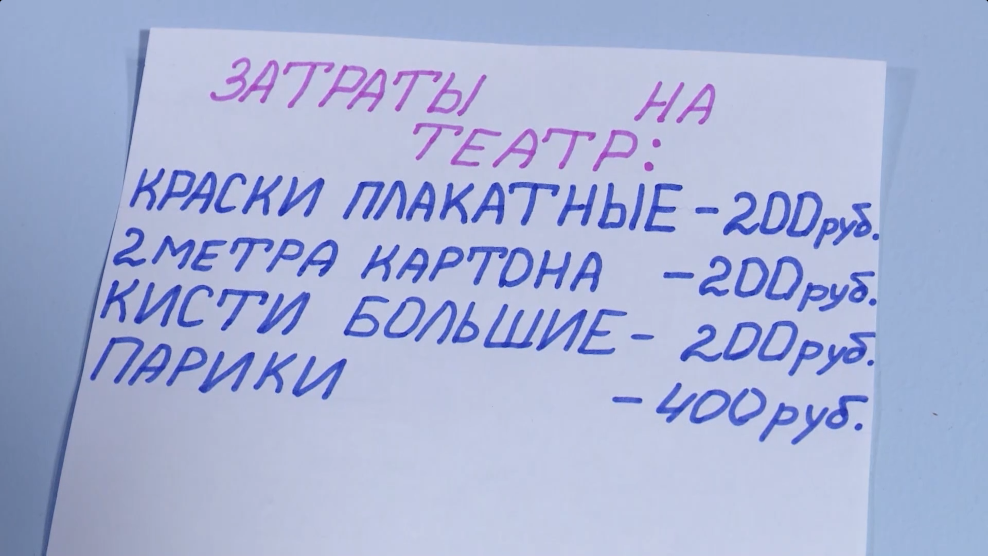 ЗАТРАТЫ НА
ТЕАТР:
КРАСКИ ПЛАКАТНЫЕ - 200 руб.
2 МЕТРА КАРТОНА - 200 руб.
КИСТИ БОЛЬШИЕ - 200 руб.
ПАРИКИ - 400 руб.